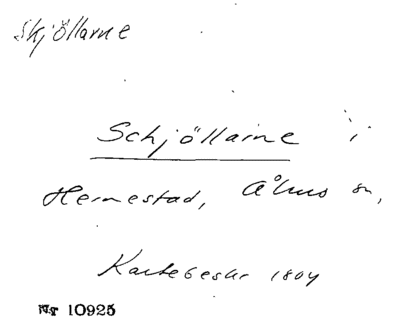 Skjöllarne
Schjöllarne i
Hemmestad, Åhus sn,
Kartebeskr 1804
Nr 10925